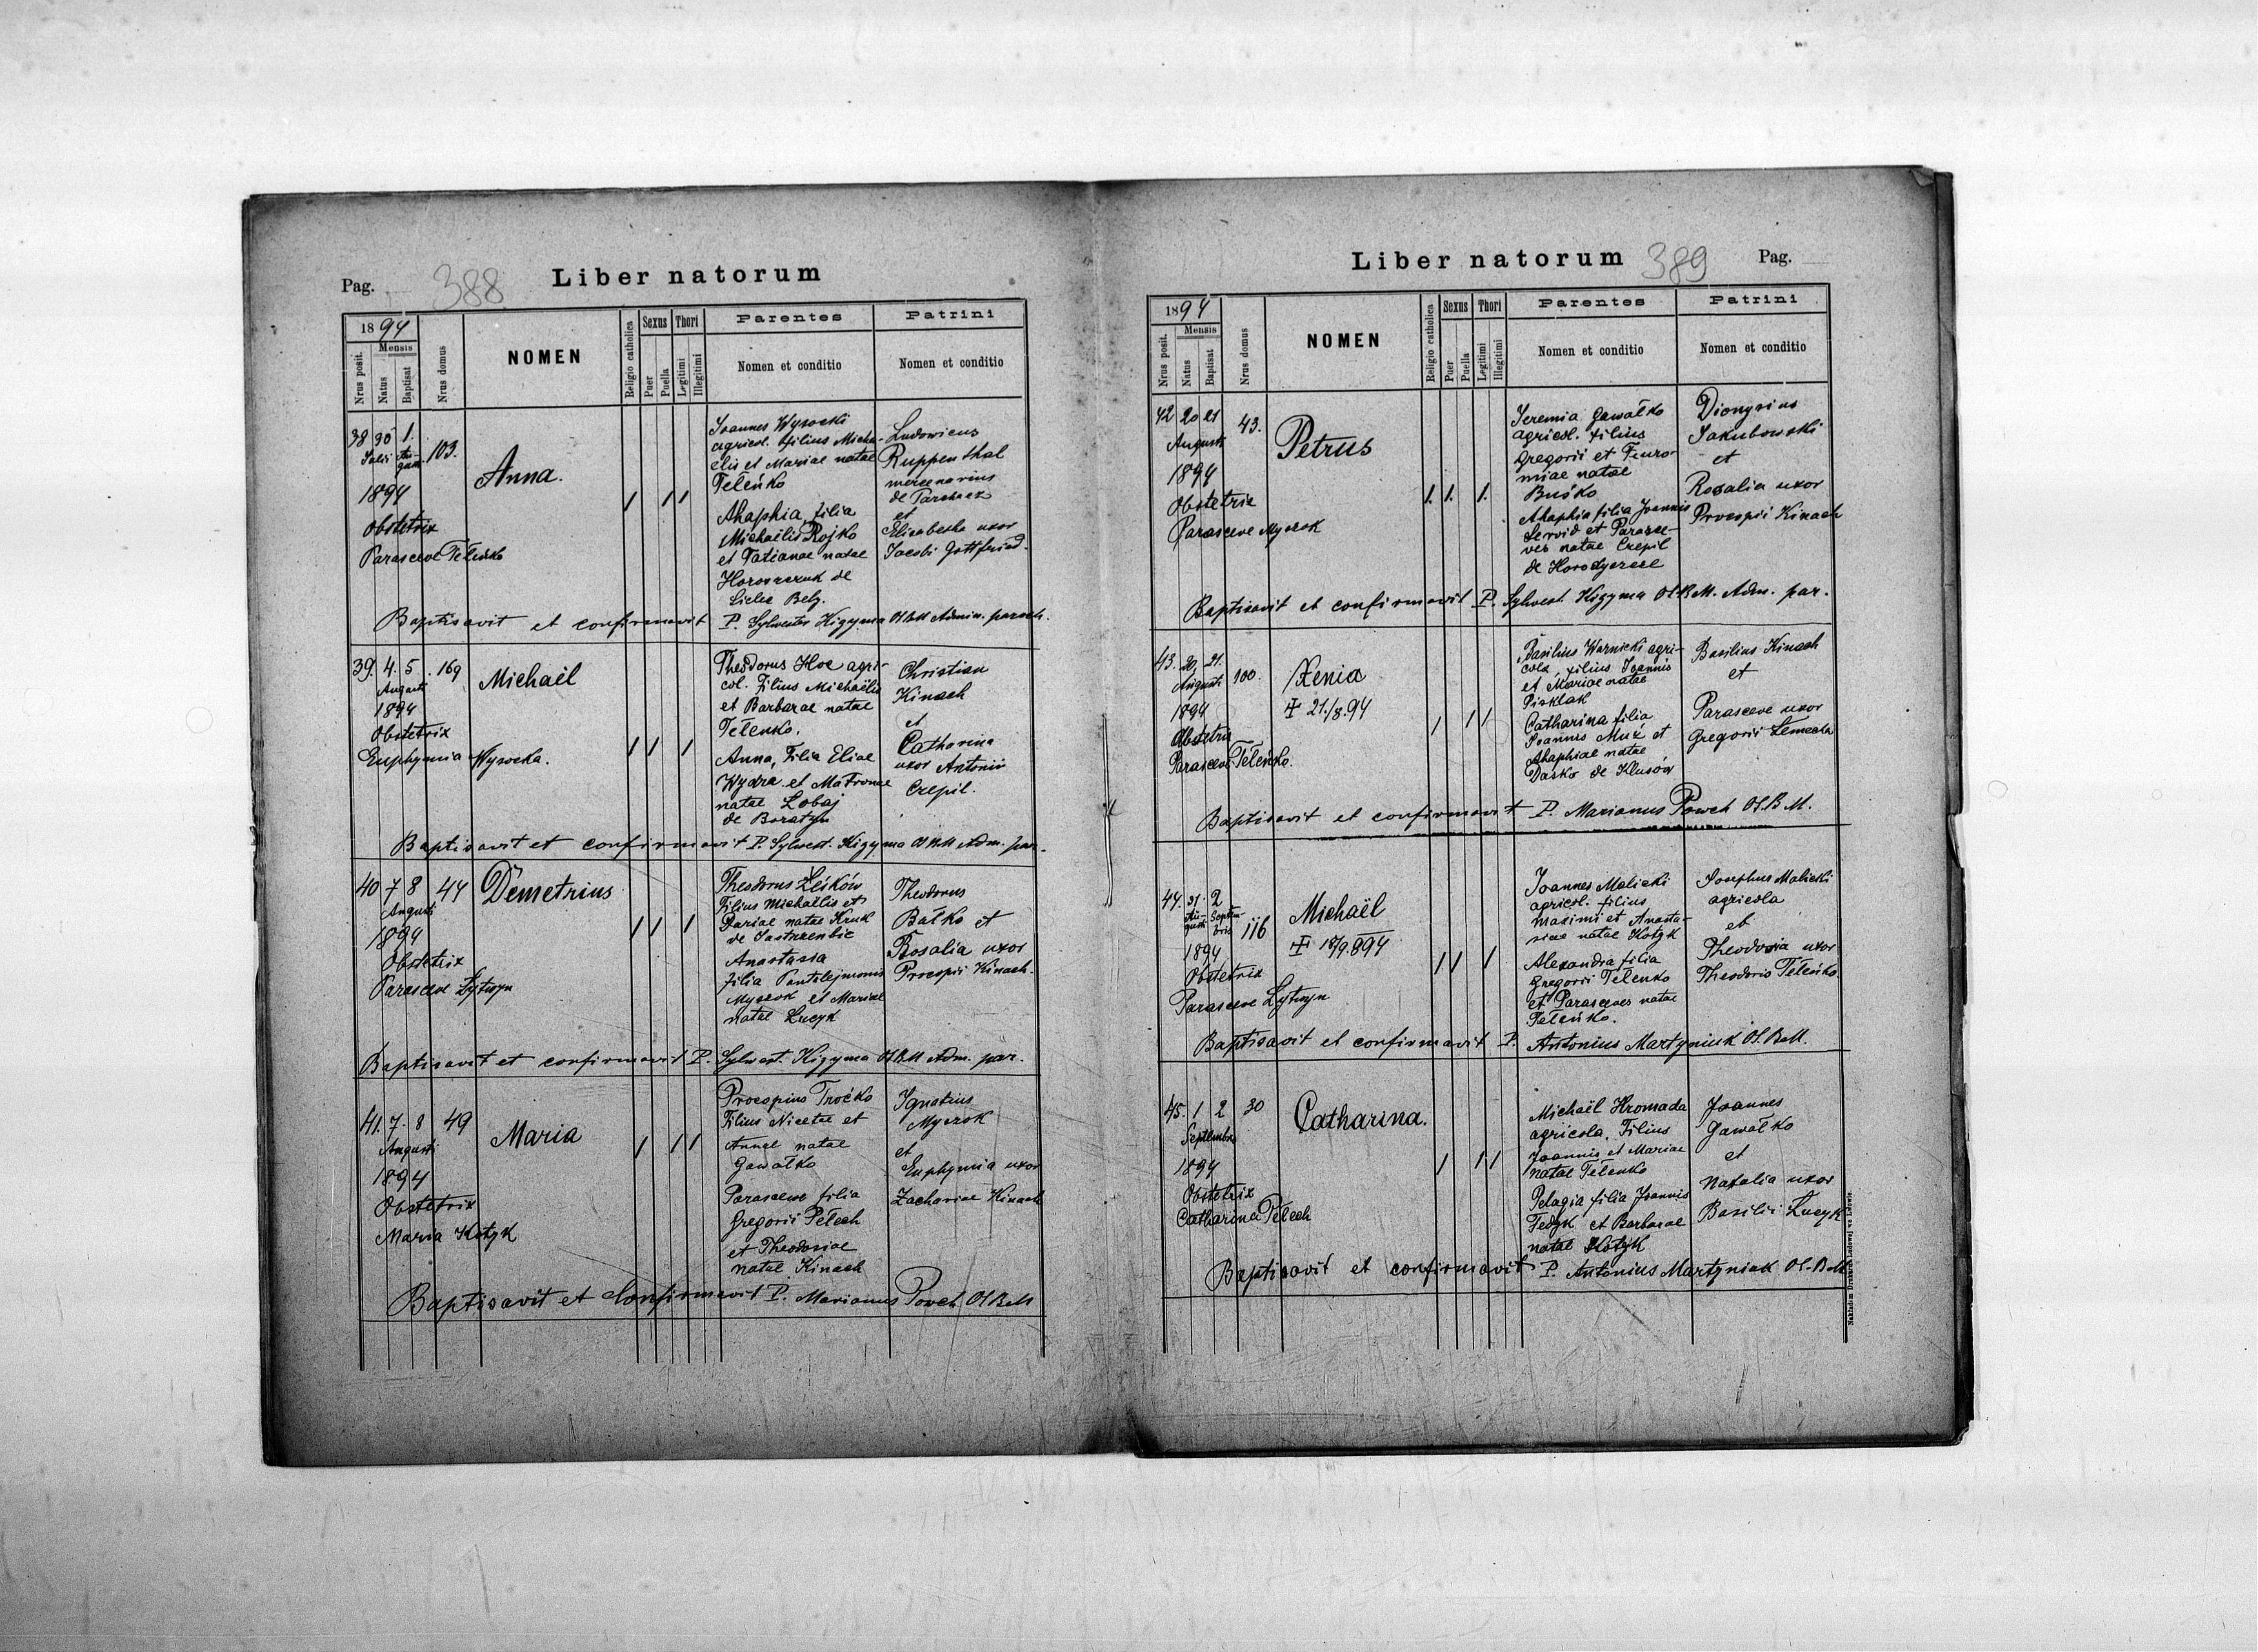 Pag.
388
Liber natorum
1894
Nrus posit.
Mensis
Natus
Baptisat
Nrus domus
NOMEN
Religio catholica
Sexus
Puer
Puella
Thori
Legitimi
Illegitimi
Parentes
Nomen et conditio
Patrini
Nomen et conditio
38 30 1. 103.
Julii Augusti
1894
Obstetrix
Parasceve Teleńko
Anna.
1 1 1
Joannes Wysocki
agricol. filius Micha-
elis et Mariae natae
Teleńko
Ahaphia filia
Michaëlis Rojko
et Tatianae natae
de
Belz.
Ludovicus
Ruppenthal
mercenarius
de
et
Elisabetha uxor
Jacobi Gottfried.
Baptisavit et confirmavit P. Sylvester Kizyma OSBM Admin. paroch.
39. 4. 5. 169
Augusti
1894
Obstetrix
Euphymia Wysocka.
Michaël
1 1 1
Theodorus Hoc agri-
col. Filius Michaëlis
et Barbarae natae
Teleńko.
Anna, Filia Eliae
Wydra et Matronae
natae Lobaj
de Boratyn
Christian
Kinach
et
Catharina
uxor Antonii
Czepil.
Baptisavit et confirmavit P. Sylvest. Kizyma OSBM Adm. par.
40 7 8 44
Augusti
1894
Obstetrix
Parasceve Lytwyn
Demetrius
1 1 1
Theodorus Leśków
Filius Michaëlis et
Dariae natae Kruk
de Jastrzenbic
Anastasia
filia Pantelejmonis
Myszok et Mariae
natae Łucyk
Theodorus
Bałko et
Rosalia uxor
Procopii Kinach.
Baptisavit et confirmavit P. Sylvest. Kizyma OSBM Adm. par.
41. 7. 8 49
Augusti
1894
Obstetrix
Maria Kotyk
Maria
1 1 1
Procopius Troćko
Filius Nicetae et
Annae natae
Gawałko
Parasceve filia
Gregorii Pełech
et Theodosiae
natae Kinach
Ignatius
Myszok
et
Euphymia uxor
Zachariae Kinach
Baptisavit et Confirmavit P. Marianus Powch OSBM
Liber natorum
389
Pag.
1894
Nrus posit.
Mensis
Natus
Baptisat
Nrus domus
NOMEN
Religio catholica
Sexus
Puer
Puella
Thori
Legitimi
Illegitimi
Parentes
Nomen et conditio
Patrini
Nomen et conditio
42 20 21 43.
Augusti
1894
Obstetrix
Parasceve Myszok
Petrus
1. 1. 1.
Jeremia Gawałko
agricol. filius
Gregorii et Feuro-
niae natae
Buśko
Ahaphia filia Joannis
Serwid et Parasce-
ves natae Czepil
de
Dionysius
Jakubowski
et
Rosalia uxor
Procopii Kinach
Baptisavit et confirmavit P. Sylvest. Kizyma OSBM. Adm. par.
43. 20. 21. 100.
Augusti
1894
Obstetrix
Parasceve Teleńko.
Xenia
21./8.94
1 1 1
Basilius Warnicki agri-
cola, filius Joannis
et Mariae natae
Pisklak
Catharina filia
Joannis Muż et
Ahaphiae natae
Daśko de Klusów
Basilius Kinach
et
Parasceve uxor
Gregorii
Baptisavit et confirmavit P. Marianus Powch OSBM.
44. 31. 2 116
Augusti Septembris
1894
Obstetrix
Parasceve Lytwyn
Michaël
18/9.894
1 1 1
Joannes Malicki
agricol. filius
Maximi et Anasta-
siae natae Kotyk
Alexandra filia
Gregorii Teleńko
et Parasceves natae
Teleńko.
Josephus Malicki
agricola
et
Theodosia uxor
Theodoris Teleńko.
Baptisavit et confirmavit P. Antonius Martyniuk OSBM.
45. 1 2 30
Septembris
1894
Obstetrix
Catharina Pełech
Catharina.
1 1 1
Michaël Hromada
agricola, Filius
Joannis et Mariae
natae Teleńko
Pelagia filia Joannis
Fedyk et Barbarae
natae Kotyk
Joannes
Gawałko
et
Natalia uxor
Basilii Łucyk
Baptisavit et confirmavit P. Antonius Martyniuk OSBM
Nakładem Drukarni Ludowej we Lwowie.